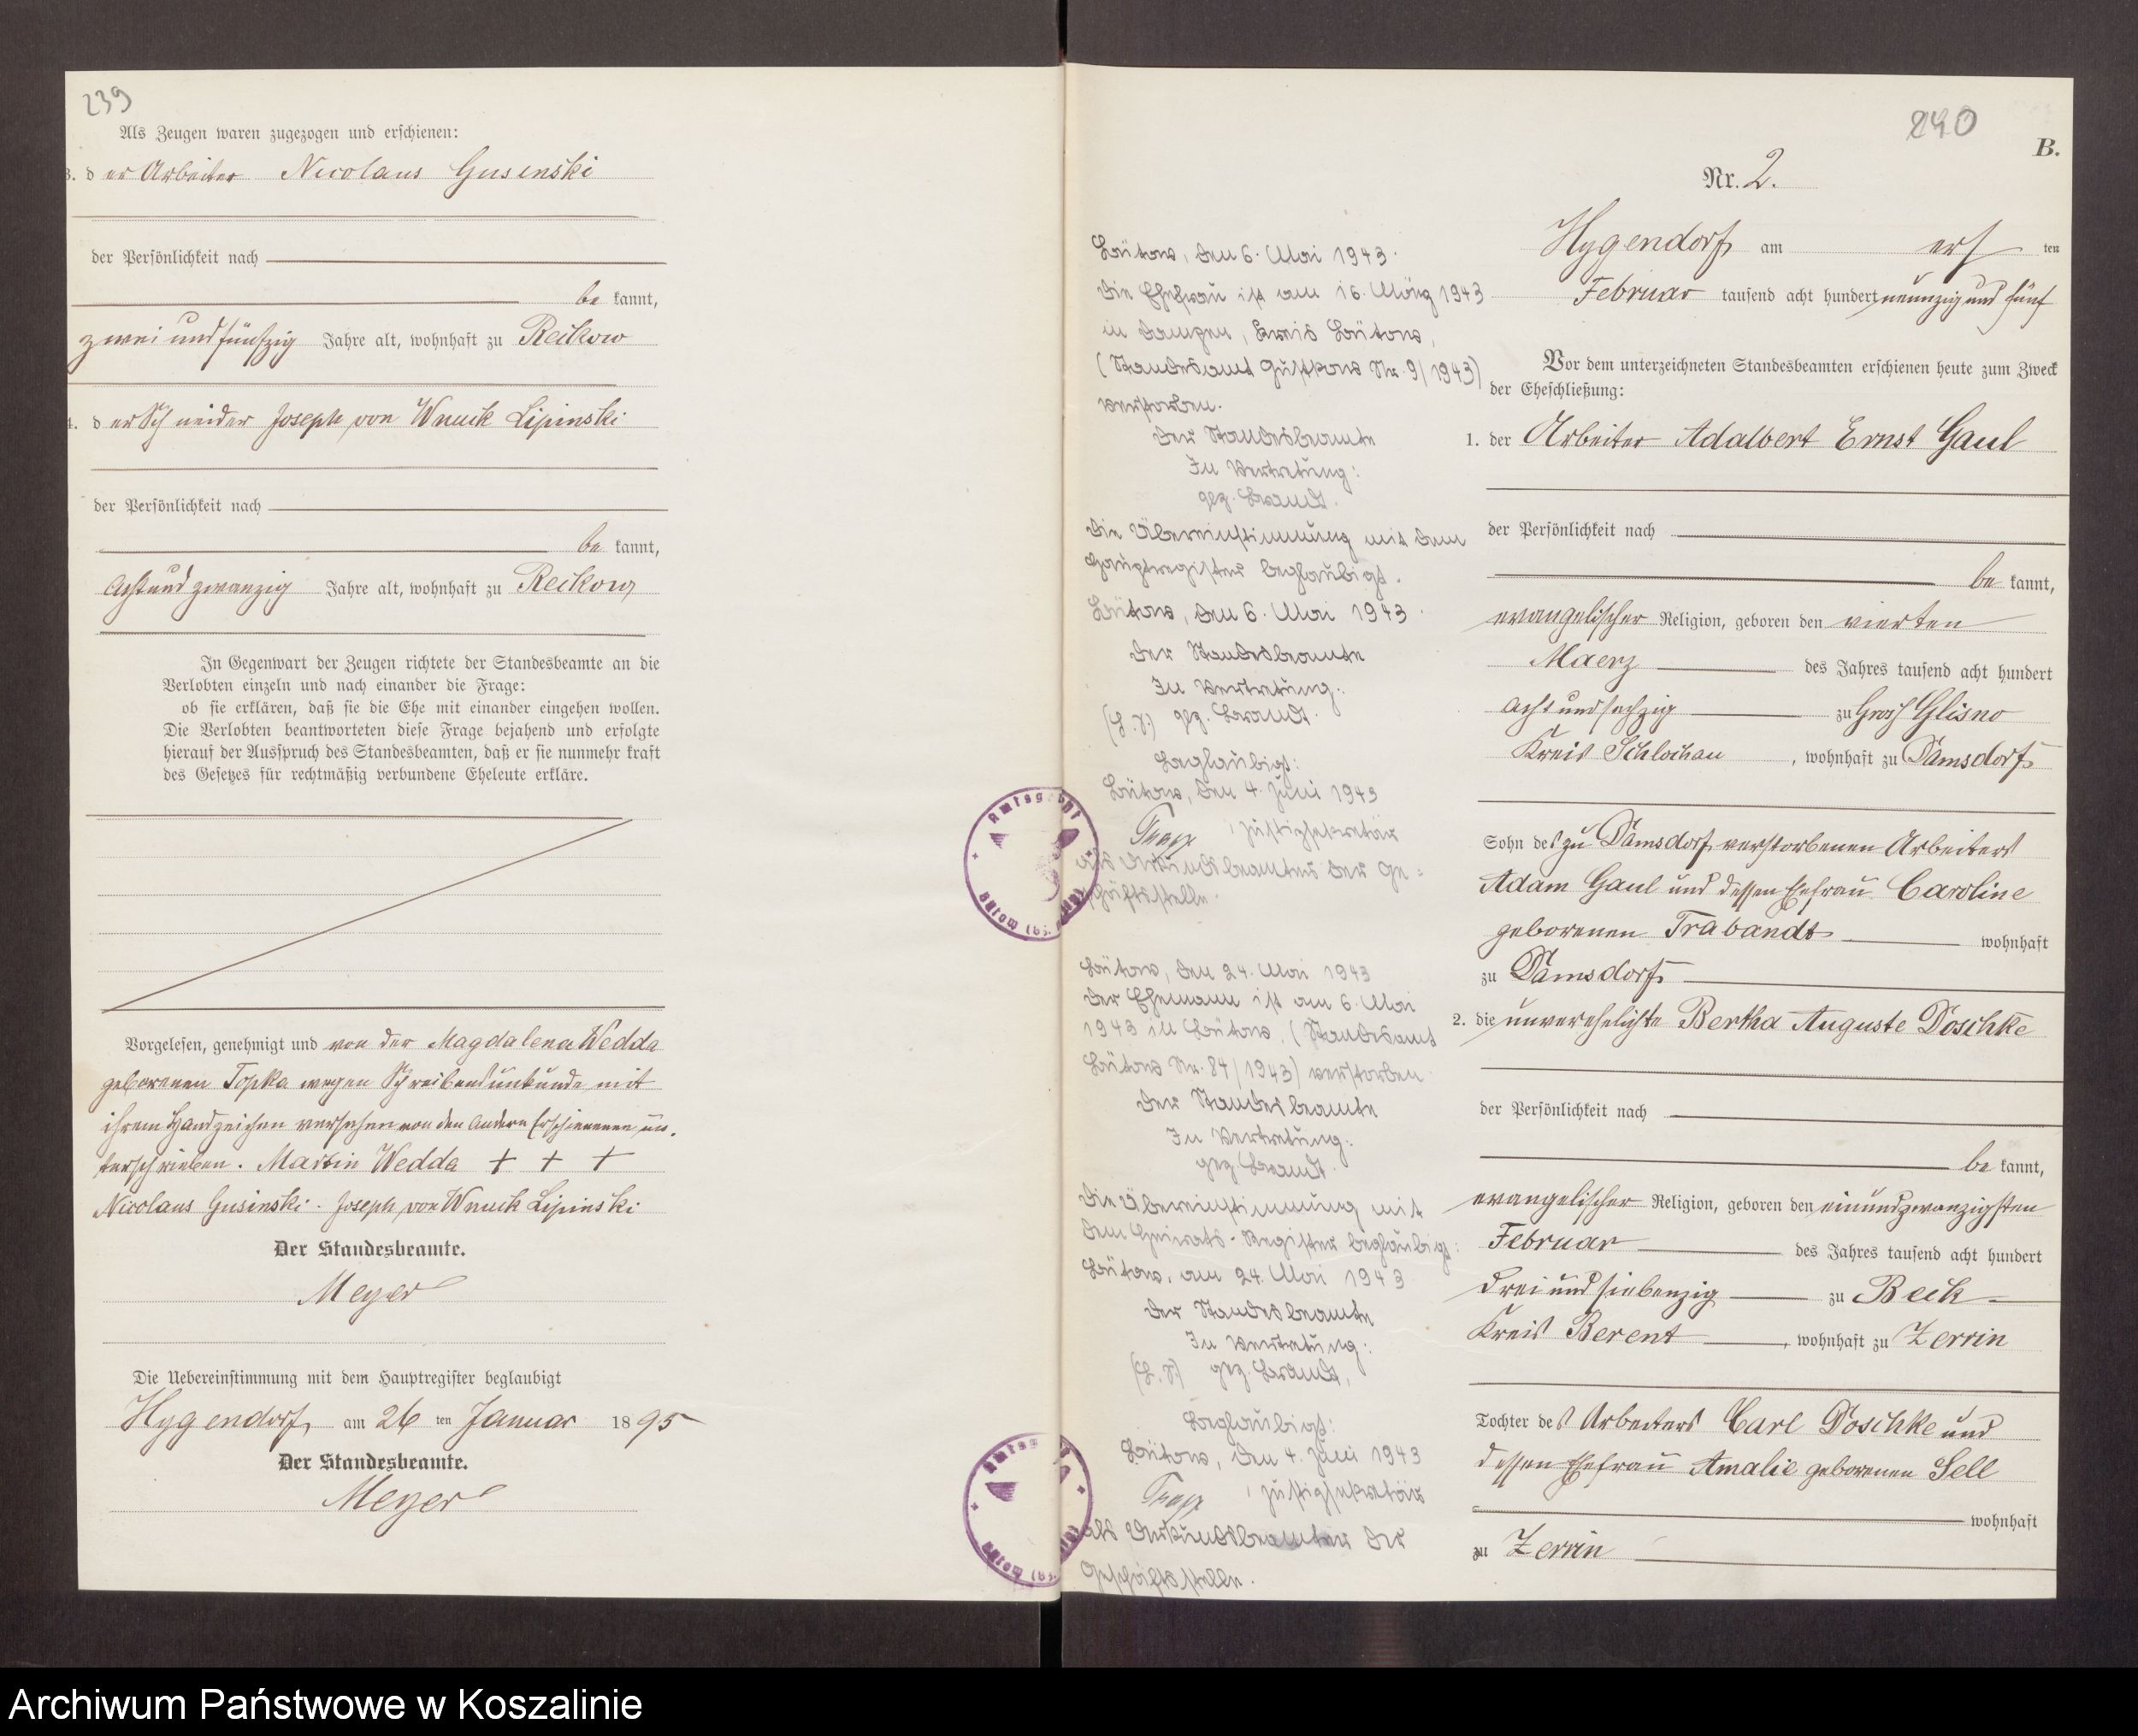 239
Als Zeugen waren zugezogen und erschienen:
3. der Arbeiter Nicolaus Gusinski
der Persönlichkeit nach
be kannt,
zwei und fünfzig Jahre alt, wohnhaft zu Reikow
4. der Schneider Joseph von Wnuck Lipinski
der Persönlichkeit nach
be kannt,
acht und zwanzig Jahre alt, wohnhaft zu Reikow
In Gegenwart der Zeugen richtete der Standesbeamte an die
Verlobten einzeln und nach einander die Frage:
ob sie erklären, daß sie die Ehe mit einander eingehen wollen.
Die Verlobten beantworteten diese Frage bejahend und erfolgte
hierauf der Ausspruch des Standesbeamten, daß er sie nunmehr kraft
des Gesetzes für rechtmäßig verbundene Eheleute erkläre.
Vorgelesen, genehmigt und von der Magdalena Wedda
geborenen Topka wegen Schreibensunkunde mit
ihrem Handzeichen versehen von den andern Erschienenen un-
terschrieben. Martin Wedda + + +
Nicolaus Gusinski. Joseph von Wnuck Lipinski
Der Standesbeamte.
Meyer
Die Uebereinstimmung mit dem Hauptregister beglaubigt
Hygendorf, am 26 ten Januar 1895
Der Standesbeamte.
Meyer
240
B.
Nr. 2.
Hygendorf am ersten
Februar tausend acht hundert neunzig und fünf
Vor dem unterzeichneten Standesbeamten erschienen heute zum Zweck
der Eheschließung:
1. der Arbeiter Adalbert Ernst Gaul
der Persönlichkeit nach
be kannt,
evangelischer Religion, geboren den vierten
Maerz des Jahres tausend acht hundert
acht und sechzig zu Groß Glisno
Kreis Schlochau, wohnhaft zu Damsdorf
Sohn des zu Damsdorf verstorbenen Arbeiters
Adam Gaul und dessen Ehefrau Caroline
geborenen Trabandt wohnhaft
zu Damsdorf
2. die unverehelichte Bertha Auguste Doschke
der Persönlichkeit nach
be kannt,
evangelischer Religion, geboren den einundzwanzigsten
Februar des Jahres tausend acht hundert
drei und siebenzig zu Beek
Kreis Berent, wohnhaft zu Zerrin
Tochter des Arbeiters Carl Doschke und
dessen Ehefrau Amalie geborenen Sell
wohnhaft
zu Zerrin
Bütow, den 6. Mai 1943.
Die Ehefrau ist am 16. März 1943
in Damgen, Kreis Bütow,
(Standesamt Gustkow Nr. 9/1943)
verstorben.
Der Standesbeamte
In Vertretung:
gez. Brandt.
Die Übereinstimmung mit dem
Hauptregister beglaubigt.
Bütow, den 6. Mai 1943.
Der Standesbeamte
In Vertretung:
(L.S.) gez. Brandt.
Beglaubigt:
Bütow, den 4. Juni 1943
, Justizsekretär
als Urkundsbeamter der Ge=
schäftsstelle.
Bütow, den 24. Mai 1943
Der Ehemann ist am 6. Mai
1943 in Bütow, (Standesamt
Bütow Nr. 84/1943) verstorben.
Der Standesbeamte
In Vertretung:
gez. Brandt.
Die Übereinstimmung mit
dem Heirats-Register beglaubigt:
Bütow, am 24. Mai 1943
Der Standesbeamte
In Vertretung:
(L.S.) gez. Brandt.
Beglaubigt:
Bütow, den 4. Juni 1943
, Justizsekretär
als Urkundsbeamter der
Geschäftsstelle.
Archiwum Państwowe w Koszalinie